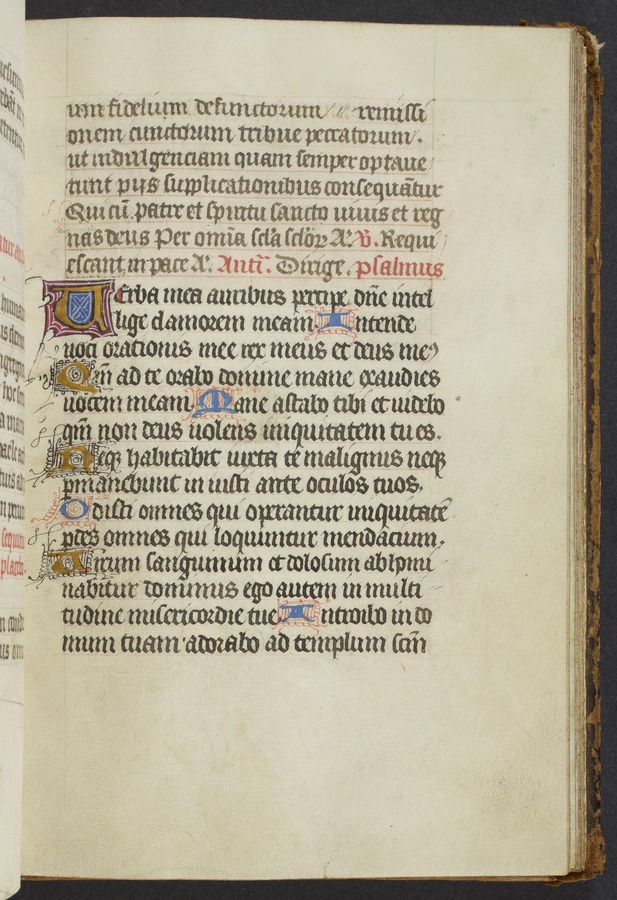 um fidelium defunctorum remissi
onem cunctorum tribue peccatorum.
ut indulgenciam quam semper optaue
runt pijs supplicationibus consequãtur
Qui cũ patre et spiritu sancto uiuis et reg
nas deus Per omĩa scl̃a scl̃oꝝ A. ℣. Requi
escant in pace A. Antĩ. Dirige. psalmus
UErba mea auribus percipe dñe intel
lige clamorem meam Intende
uoci orationis mee rex meus et deus meꝰ
Qm̃ ad te orabo domine mane exaudies
uocem meam. Mane astabo tibi et uidebo
qm̃ non deus uolens iniquitatem tu es.
Neqꝫ habitabit iuxta te malignus neqꝫ
ꝑmanebunt in iusti ante oculos tuos.
Odisti omnes qui operantur iniquitatẽ
ꝑdes omnes qui loquuntur mendacium.
Uirum sanguinum et dolosum abhomi
nabitur dominus ego autem in multi
tudine misericordie tue Introibo in do
mum tuam adorabo ad templum scm̃